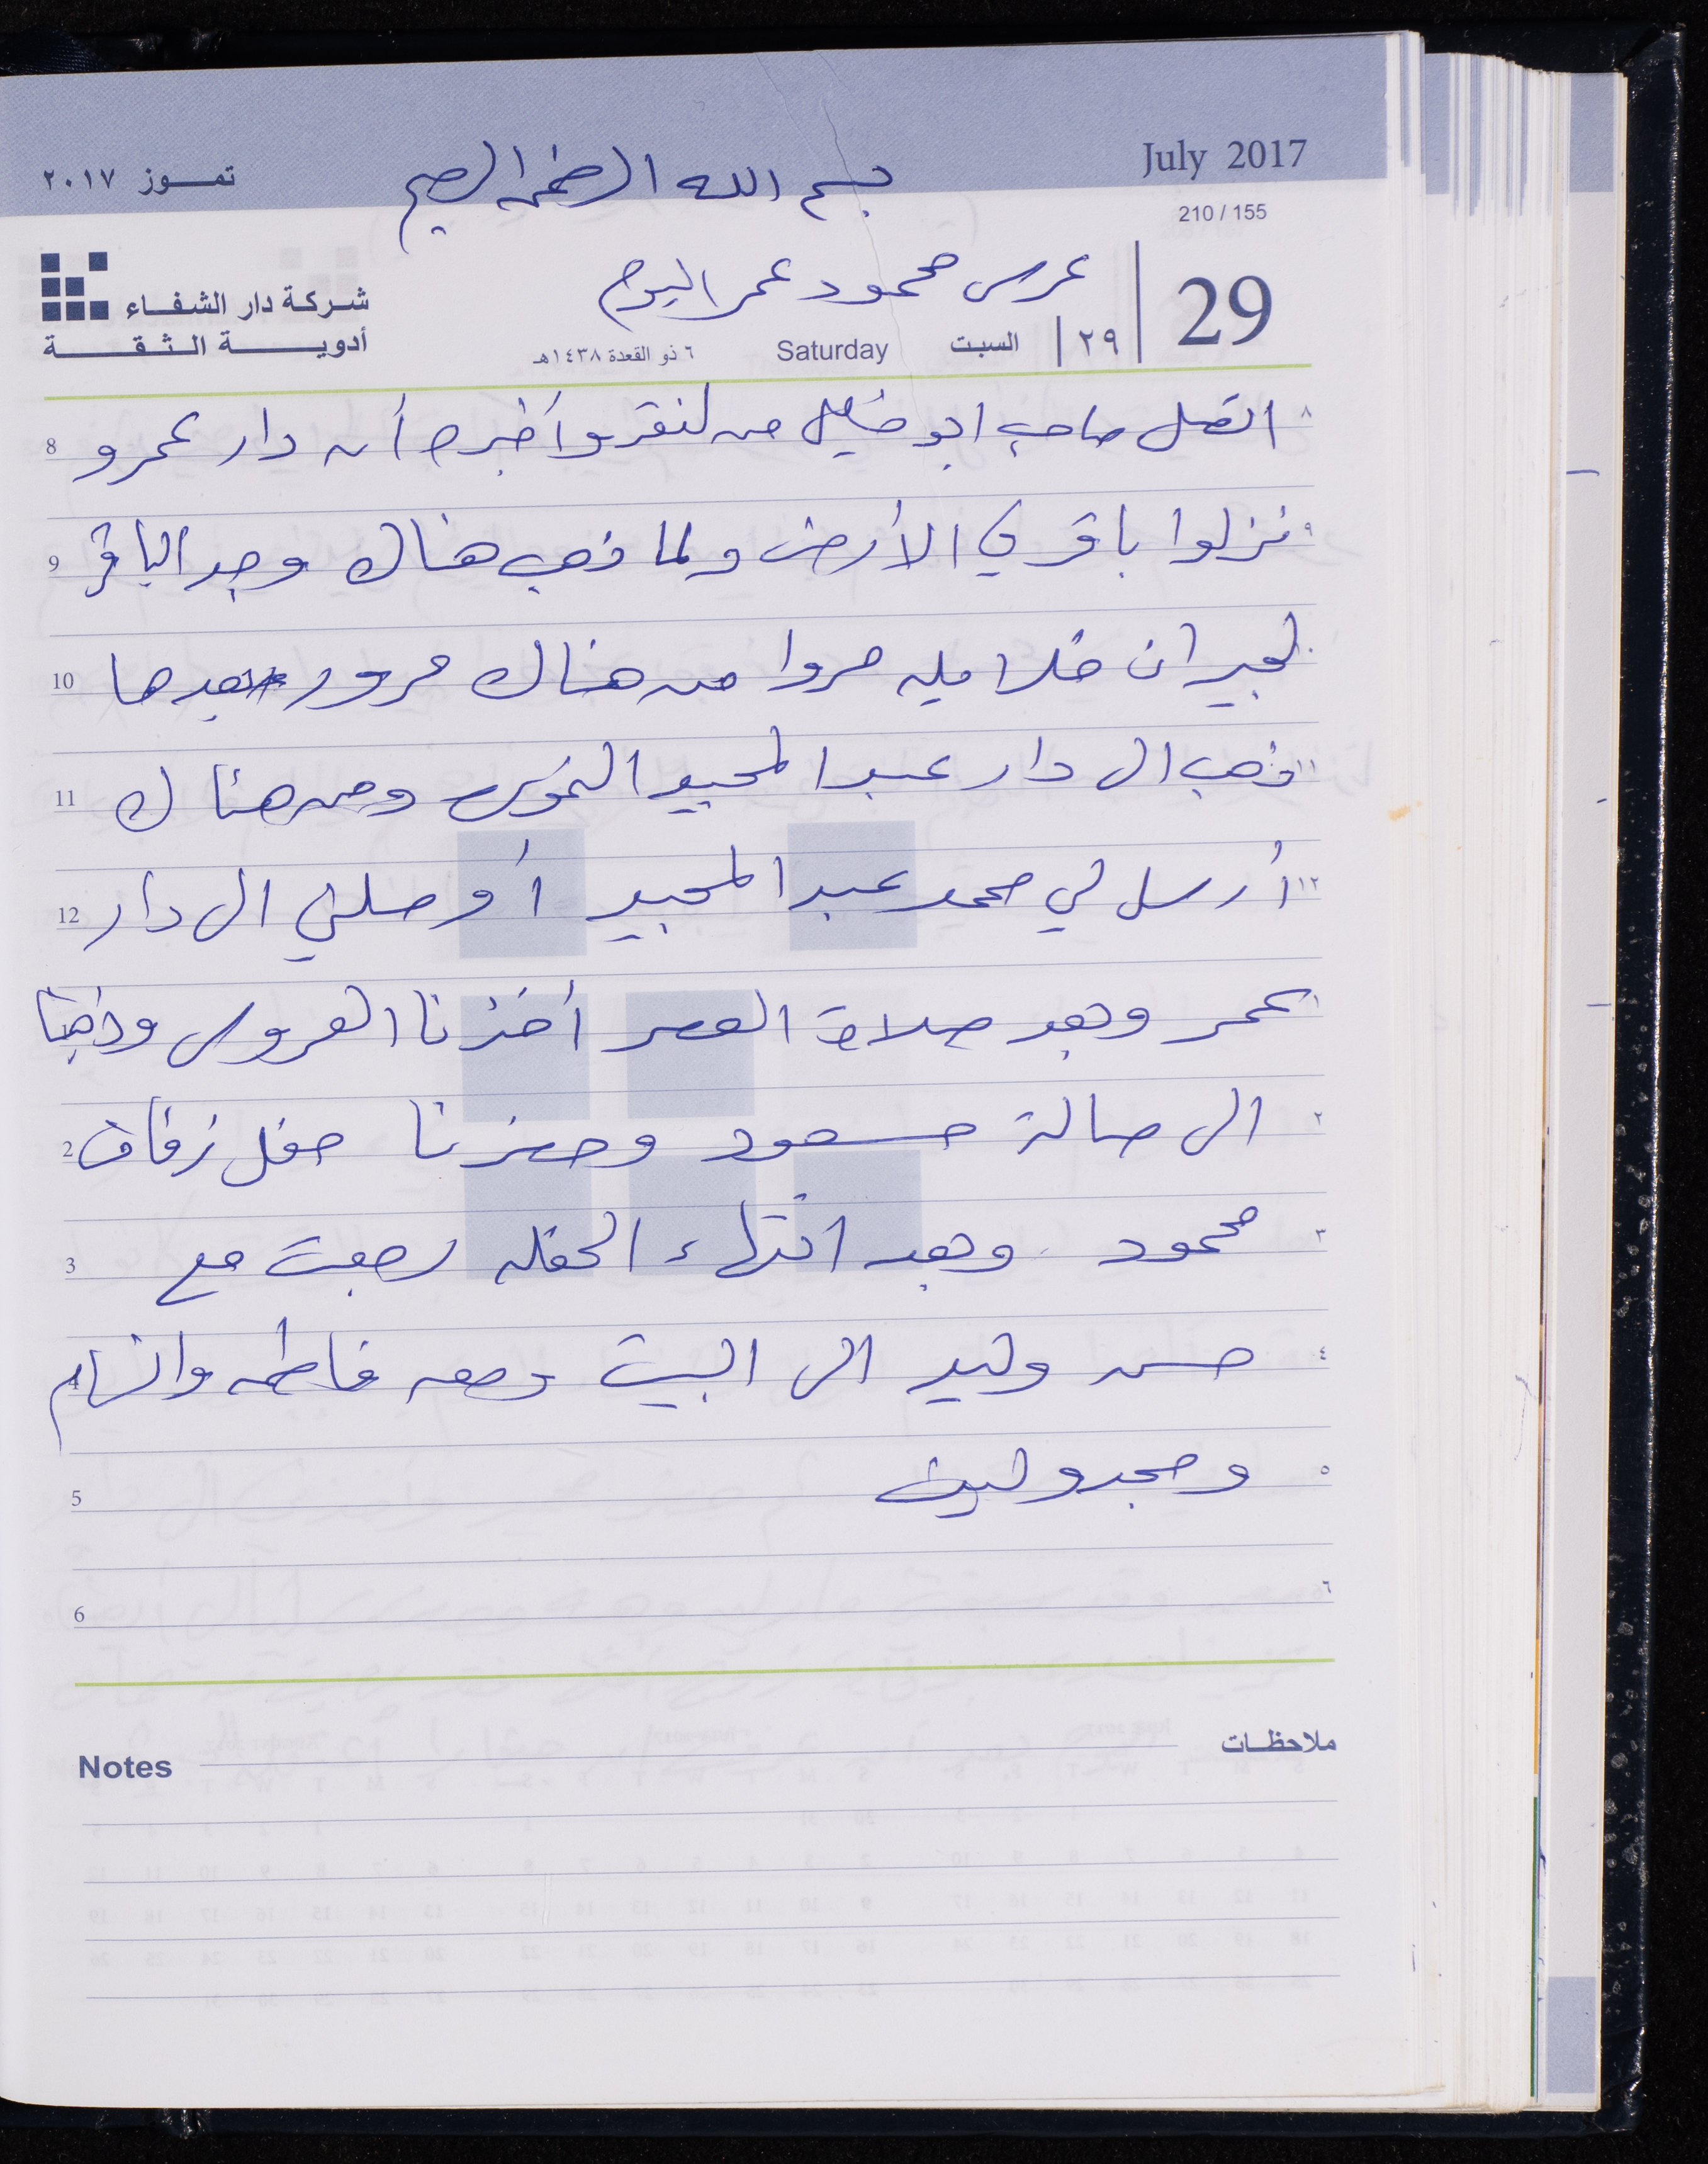 July 2017
بسم الله الرحمن الرحيم
تمــوز ٢٠١٧
210 / 155
29
عرس محمود عمر اليوم
٢٩
السبت
Saturday
٦ ذو القعدة ١٤٣٨هـ
شركة دار الشفاء
أدويــة الثـقــة
٨ اتصل صاحب ابو خليل من لنقر وأخبره أن دار عمرو 8
٩ نزلوا باقر في الأرض ولما ذهب هناك وجد الباقر 9
لجيران خلايله مروا من هناك مرور بعدها 10
١١ ذهب ال دار عبد المجيد ومن هناك 11
١٢ أرسل لي محمد عبد المجيد أوصلني ال دار 12
١ عمر وبعد صلاة العصر أخذنا العروس وذهبنا
٢ ال صالة مسعود وحضرنا حفل زفاف 2
٣ محمود وبعد انتهاء الحفله رجعت مع 3
٤ حسن وليد الى البيت ومعه فاطمه والهام 4
٥ ومجد وليث 5
٦ 6
ملاحظات
Notes